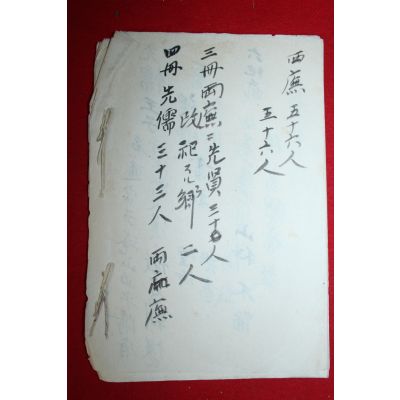 西廡 五十六人
五十六人
三冊 両廡 二 先賢 三十 人
改祀 鄕 二人
四冊 先儒 三十三人 両廡